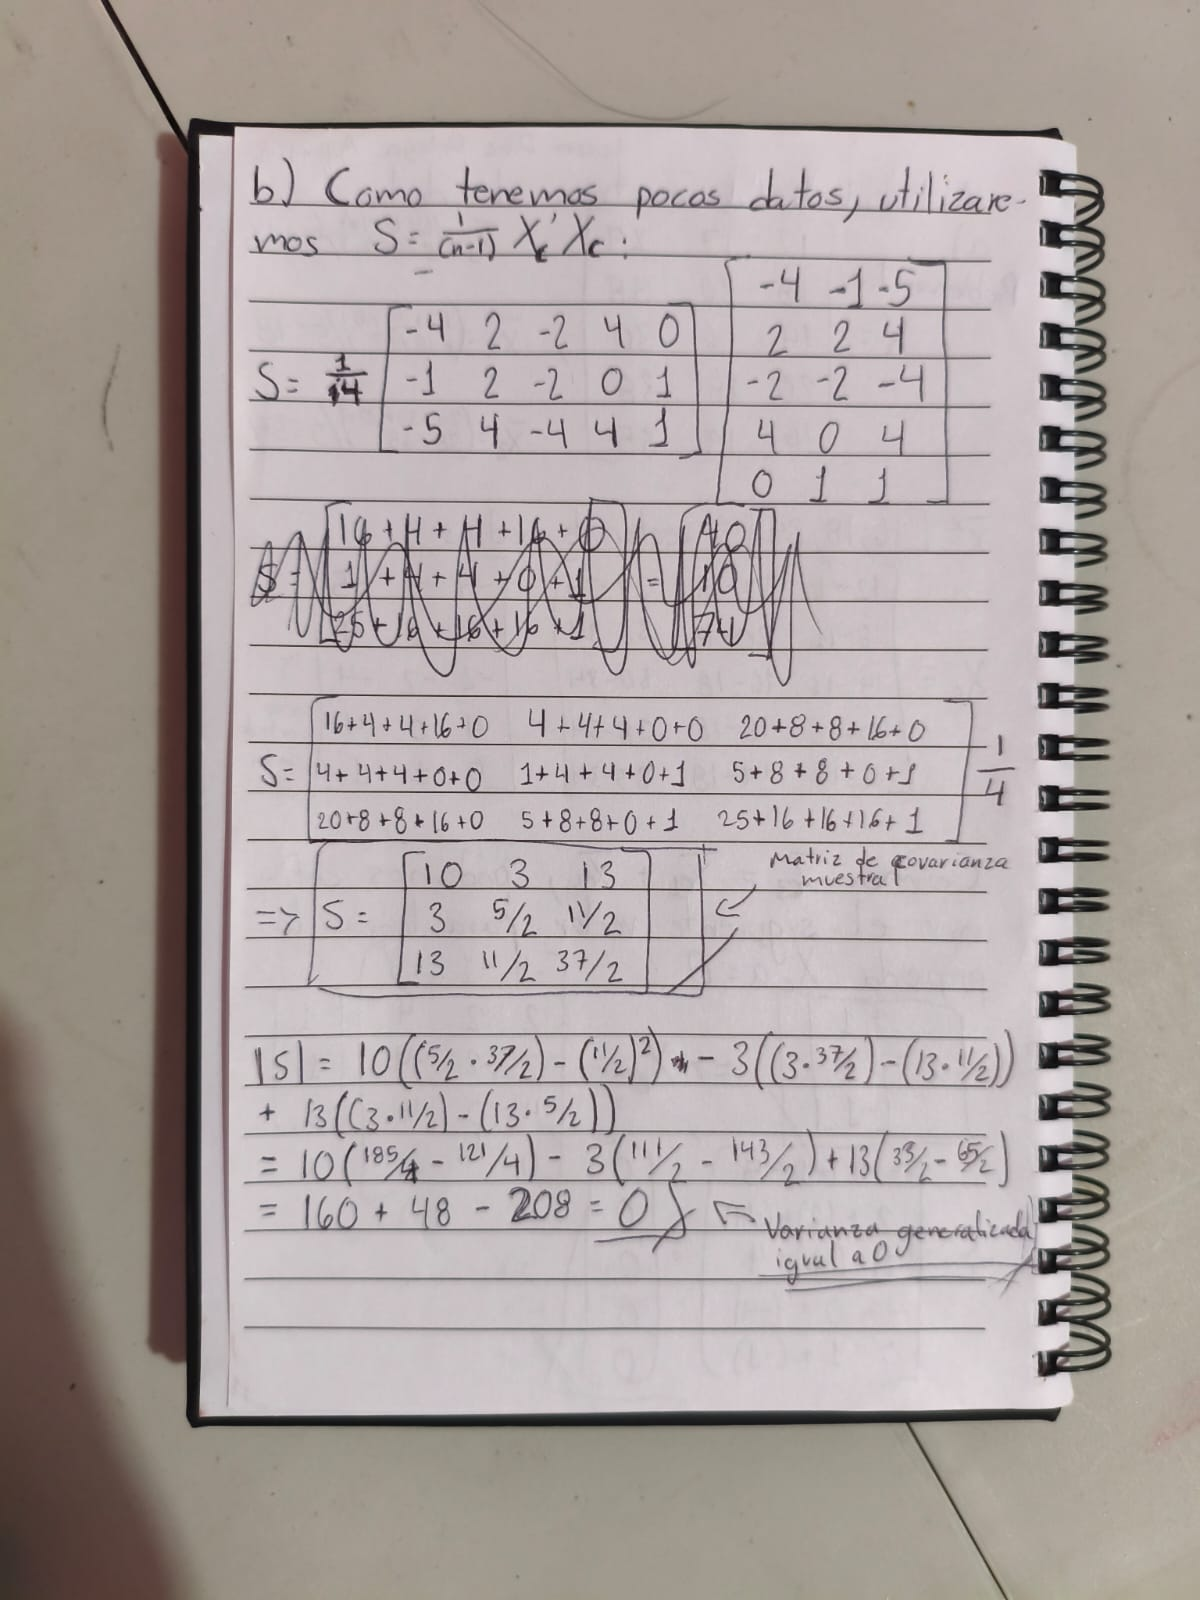 b) Como tenemos pocos datos, utilizare-
mos S = 1/(n-1) Xc' Xc :
S = 1/4 [-4 2 -2 4 0] [-4 -1 -5]
[-1 2 -2 0 1] [2 2 4]
[-5 4 -4 4 1] [-2 -2 -4]
[4 0 4]
[0 1 1]
S = [16+4+4+16+0] = [40]
[1+4+4+0+1] [10]
[25+16+16+16+1] [74]
S = [16+4+4+16+0 4+4+4+0+0 20+8+8+16+0] 1/4
[4+4+4+0+0 1+4+4+0+1 5+8+8+0+1]
[20+8+8+16+0 5+8+8+0+1 25+16+16+16+1]
=> S = [10 3 13]
[3 5/2 11/2]
[13 11/2 37/2]
Matriz de covarianza
muestral
|S| = 10((5/2 · 37/2) - (11/2)²) - 3((3·37/2) - (13·11/2))
+ 13((3·11/2) - (13·5/2))
= 10(185/4 - 121/4) - 3(111/2 - 143/2) + 13(33/2 - 65/2)
= 160 + 48 - 208 = 0
Varianza generalizada
igual a 0